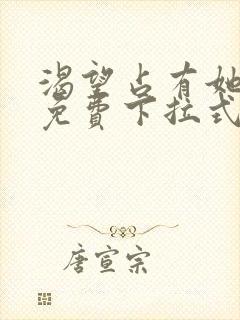 渴望占有她
免费下拉式
唐宣宗